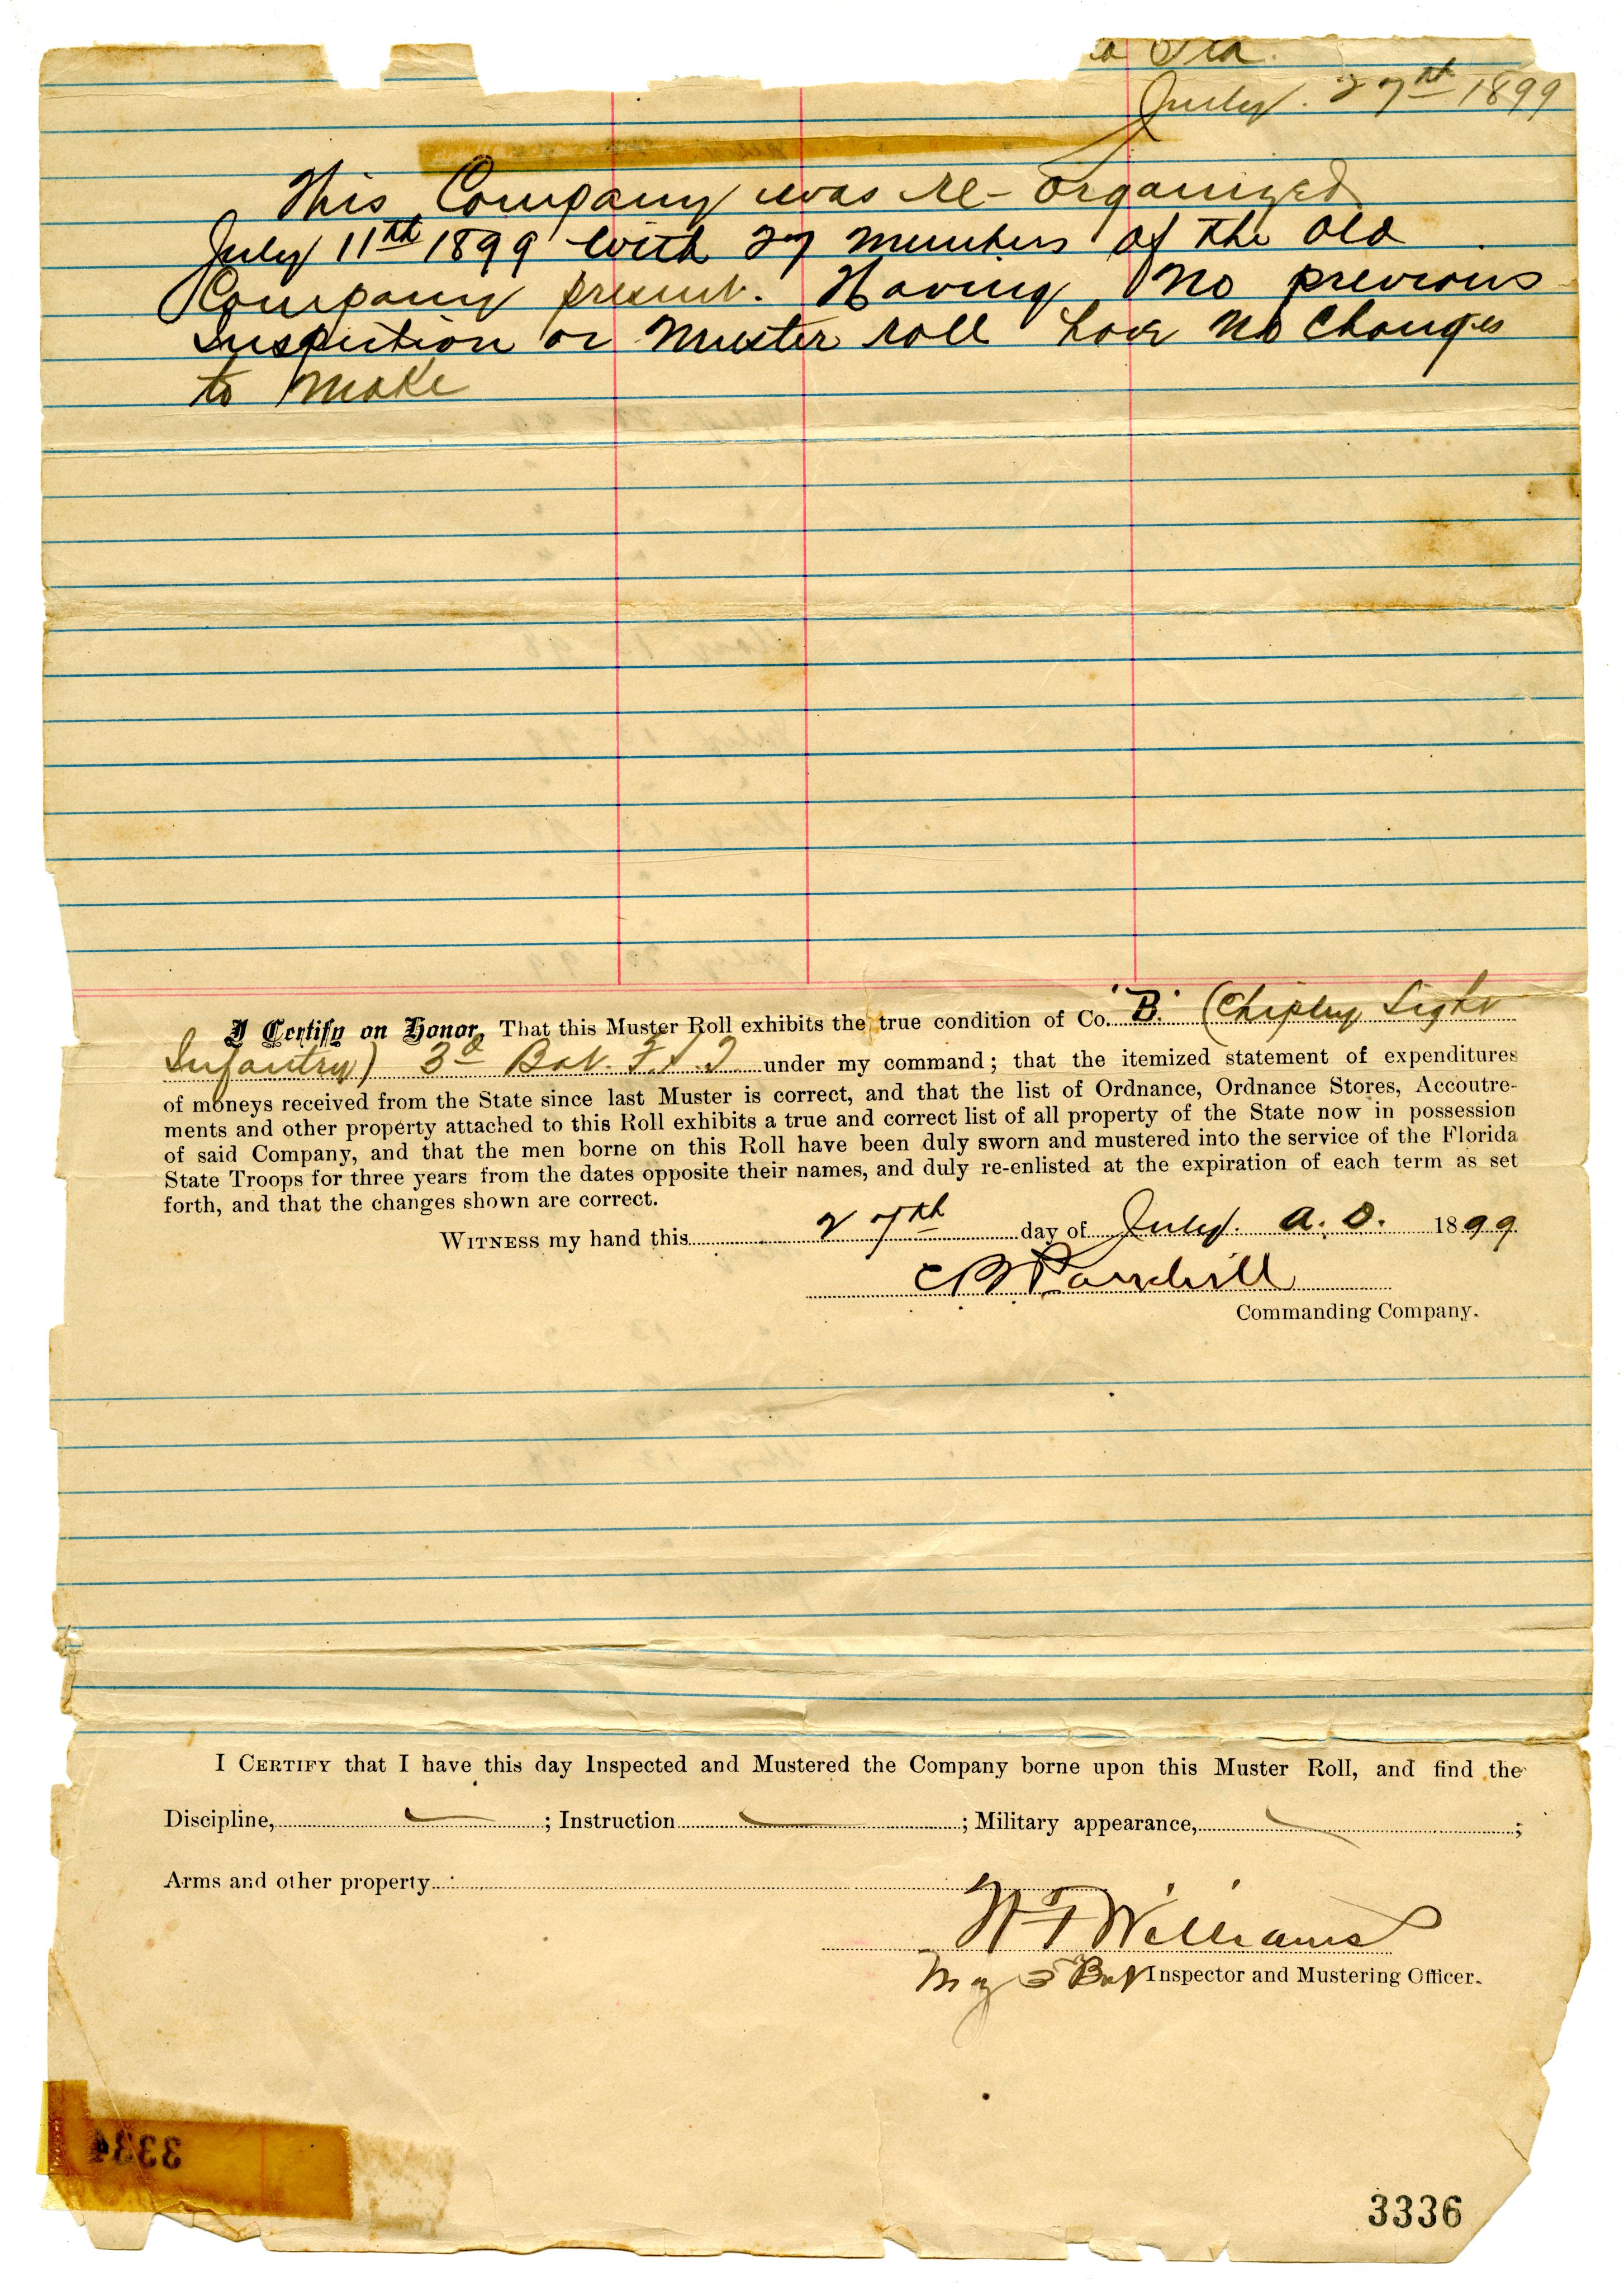 Fla.
July. 27th 1899
This Company was re-organized
July 11th 1899 with 27 members of the old
Company present. Having no previous
Inspection or Muster roll have no Changes
to make
I Certify on Honor, That this Muster Roll exhibits the true condition of Co. "B." (Chipley Light
Infantry) 3d Bat. F.S.T. under my command; that the itemized statement of expenditures
of moneys received from the State since last Muster is correct, and that the list of Ordnance, Ordnance Stores, Accoutre-
ments and other property attached to this Roll exhibits a true and correct list of all property of the State now in possession
of said Company, and that the men borne on this Roll have been duly sworn and mustered into the service of the Florida
State Troops for three years from the dates opposite their names, and duly re-enlisted at the expiration of each term as set
forth, and that the changes shown are correct.
WITNESS my hand this 27th day of July. A.D. 1899
Commanding Company.
I CERTIFY that I have this day Inspected and Mustered the Company borne upon this Muster Roll, and find the
Discipline, ; Instruction ; Military appearance, ;
Arms and other property
W F Williams
Maj 3 Bat Inspector and Mustering Officer.
3334
3336